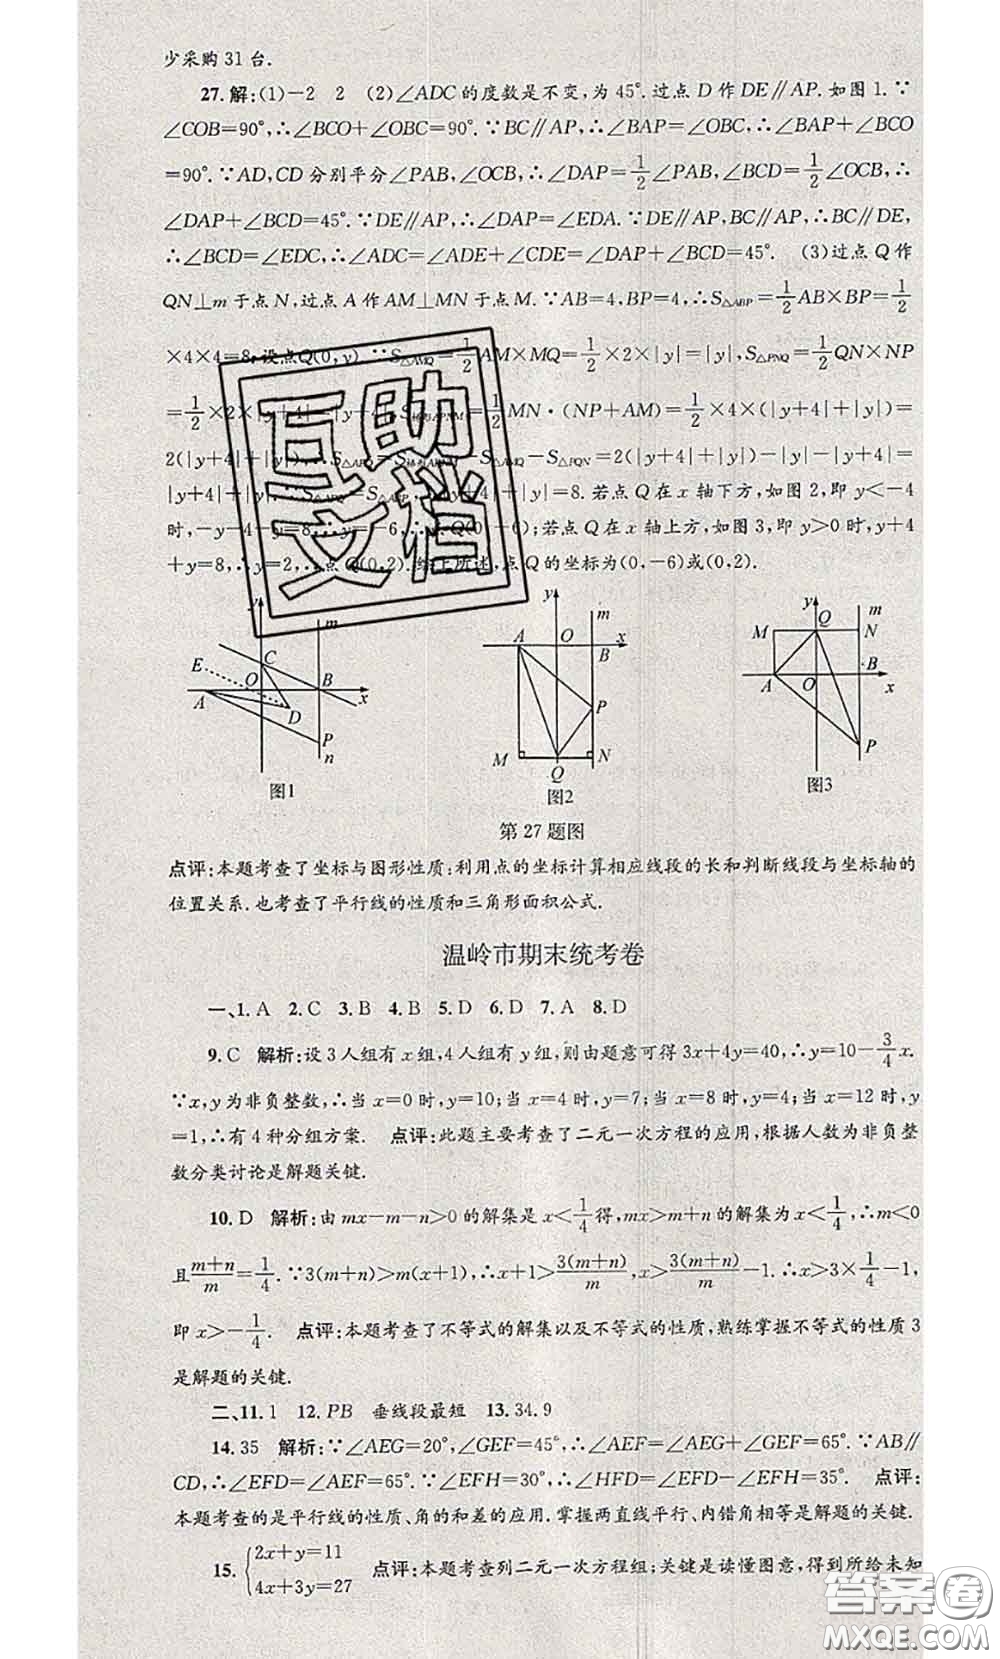 少采购31台.
27.解:(1)-2 2 (2)∠ADC的度数是不变,为45°.过点D作DE∥AP.如图1.∵
∠COB=90°,∴∠BCO+∠OBC=90°.∵BC∥AP,∴∠BAP=∠OBC,∴∠BAP+∠BCO
=90°.∵AD,CD分别平分∠PAB,∠OCB,∴∠DAP=1/2∠PAB,∠BCD=1/2∠OCB,∴
∠DAP+∠BCD=45°.∵DE∥AP,∴∠DAP=∠EDA.∵DE∥AP,BC∥AP,∴BC∥DE,
∴∠BCD=∠EDC,∴∠ADC=∠ADE+∠CDE=∠DAP+∠BCD=45°. (3)过点Q作
QN⊥m于点N,过点A作AM⊥MN于点M.∵AB=4,BP=4,∴S△ABP=1/2AB×BP=1/2
×4×4=8,设点Q(0,y).∵S△AMQ=1/2AM×MQ=1/2×2×|y|=|y|,S△PNQ=1/2QN×NP
=1/2×2×|y+4|=|y+4|,S梯形APNM=1/2MN·(NP+AM)=1/2×4×(|y+4|+|y|)=
2(|y+4|+|y|),∴S△APQ=S梯形APNM-S△AMQ-S△PQN=2(|y+4|+|y|)-|y|-|y+4|=
|y+4|+|y|.∵S△APQ=S△ABP, |y+4|+|y|=8.若点Q在x轴下方,如图2,即y<-4
时,-y-4-y=8,∴y=-6,∴点Q(0,-6);若点Q在x轴上方,如图3,即y>0时,y+4
+y=8,∴y=2,∴点Q(0,2).综上所述,点Q的坐标为(0,-6)或(0,2).
互助
文档
y m C E O B x A D P n
图1
y m A O B x P M Q N
图2
y m M Q N B A O x P
图3
第27题图
点评:本题考查了坐标与图形性质:利用点的坐标计算相应线段的长和判断线段与坐标轴的
位置关系.也考查了平行线的性质和三角形面积公式.
温岭市期末统考卷
一、1.A 2.C 3.B 4.B 5.D 6.D 7.A 8.D
9.C 解析:设3人组有x组,4人组有y组,则由题意可得3x+4y=40,∴y=10-3/4x.
∵x,y为非负整数,∴当x=0时,y=10;当x=4时,y=7;当x=8时,y=4;当x=12时,y
=1,∴有4种分组方案. 点评:此题主要考查了二元一次方程的应用,根据人数为非负整
数分类讨论是解题关键.
10.D 解析:由mx-m-n>0的解集是x<1/4得,mx>m+n的解集为x<1/4,∴m<0
且(m+n)/m=1/4.∵3(m+n)>m(x+1),∴x+1>3(m+n)/m,x>3(m+n)/m-1.∴x>3×1/4-1,
即x>-1/4. 点评:本题考查了不等式的解集以及不等式的性质,熟练掌握不等式的性质3
是解题的关键.
二、11.1 12.PB 垂线段最短 13.34.9
14.35 解析:∵∠AEG=20°,∠GEF=45°,∴∠AEF=∠AEG+∠GEF=65°.∵AB∥
CD,∴∠EFD=∠AEF=65°.∵∠EFH=30°,∴∠HFD=∠EFD-∠EFH=35°. 点评:
本题考查的是平行线的性质、角的和差的应用.掌握两直线平行、内错角相等是解题的关键.
15.{2x+y=11 4x+3y=27 点评:本题考查列二元一次方程组;关键是读懂图意,得到所给未知
答案圈
MXQE.COM